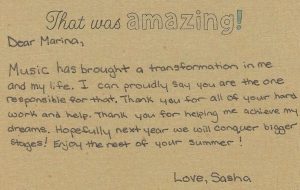 That was amazing!
Dear Marina,
Music has brought a transformation in me
and my life. I can proudly say you are the one
responsible for that. Thank you for all of your hard
work and help. Thank you for helping me achieve my
dreams. Hopefully next year we will conquer bigger
stages! Enjoy the rest of your summer!
Love, Sasha